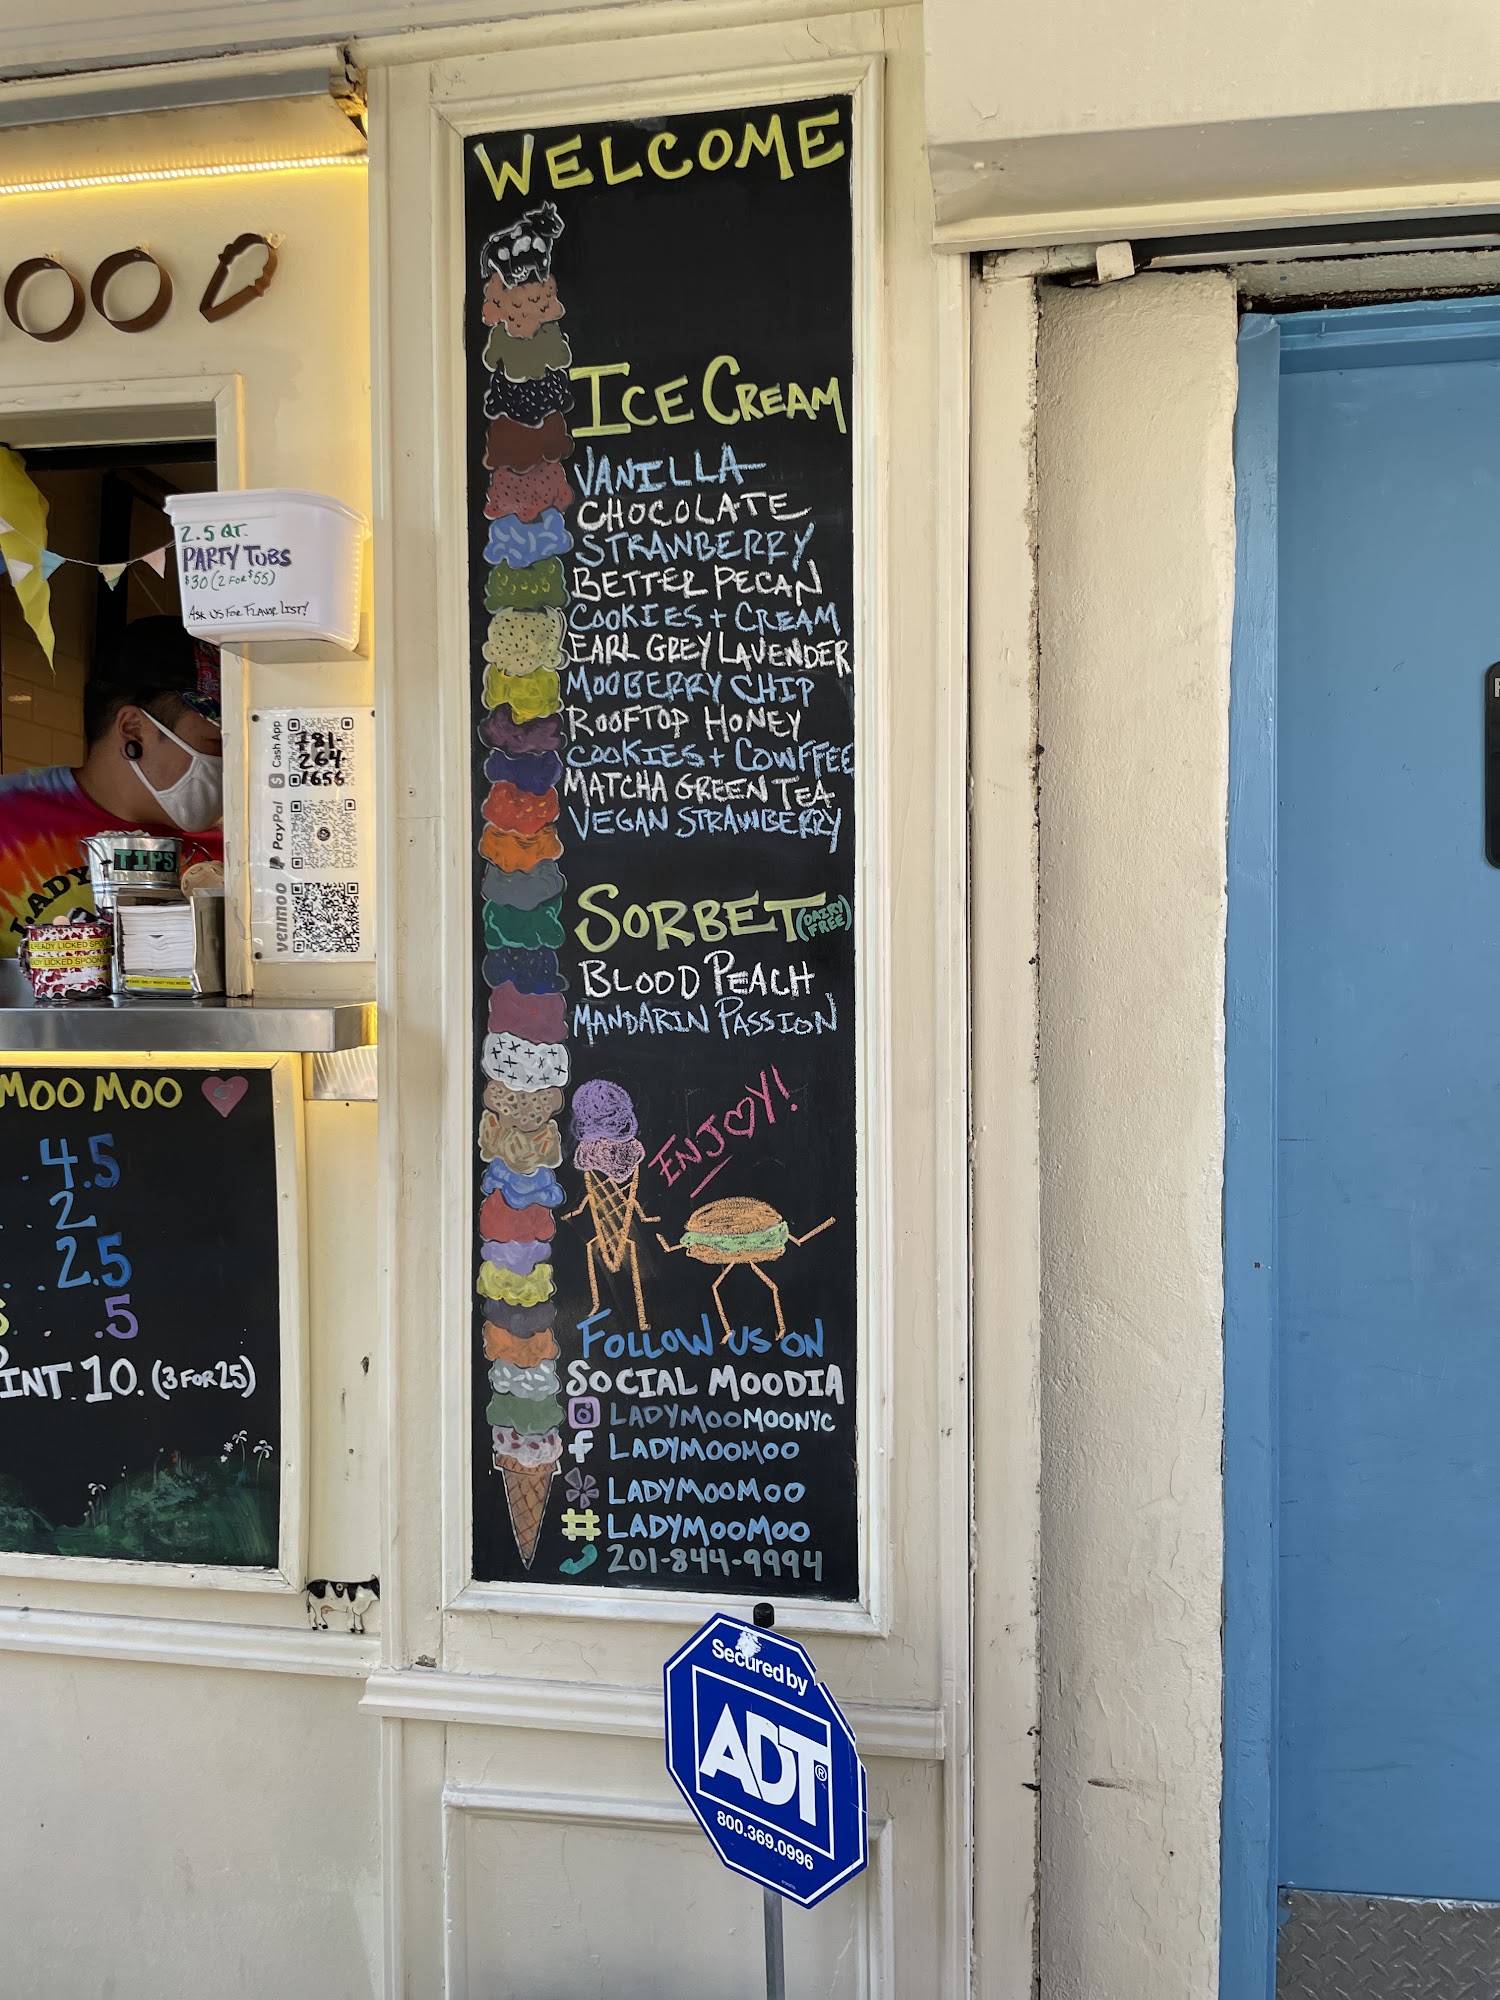 WELCOME
ICE CREAM
VANILLA
CHOCOLATE
STRAWBERRY
BETTER PECAN
COOKIES + CREAM
EARL GREY LAVENDER
MOOBERRY CHIP
ROOFTOP HONEY
COOKIES + COWFFEE
MATCHA GREEN TEA
VEGAN STRAWBERRY
SORBET (DAIRY FREE)
BLOOD PEACH
MANDARIN PASSION
ENJOY!
FOLLOW US ON
SOCIAL MOODIA
LADYMOOMOONYC
LADYMOOMOO
LADYMOOMOO
# LADYMOOMOO
201-844-9994
2.5 QT.
PARTY TUBS
$30 (2 FOR $55)
ASK US FOR FLAVOR LIST!
Cash App
781-
264-
1656
PayPal
venmo
TIPS
LADY
LICKED SPOONS
LICKED SPOONS
MOO MOO
4.5
2
2.5
.5
INT. 10. (3 FOR 25)
Secured by
ADT®
800.369.0996